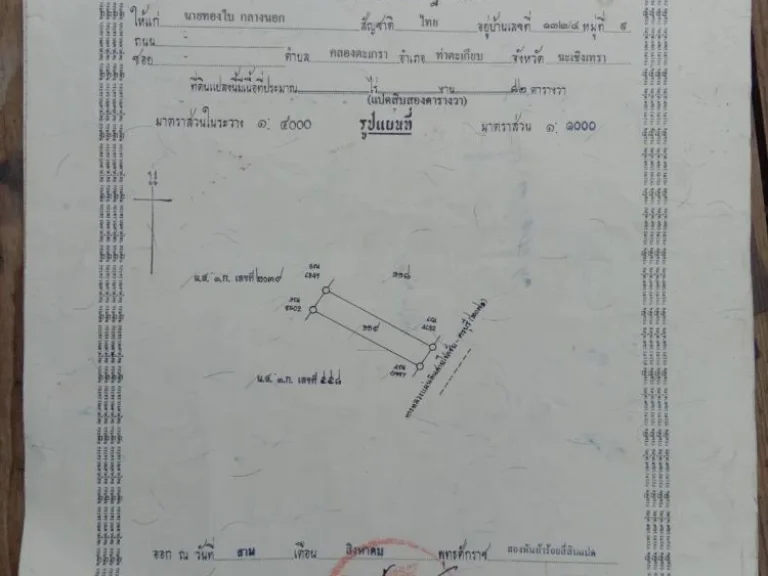 ให้แก่ นายทองใบ กลางนอก สัญชาติ ไทย อยู่บ้านเลขที่ ๑๓๒/๔ หมู่ที่ ๙
ถนน -
ซอย - ตำบล คลองตะเกรา อำเภอ ท่าตะเกียบ จังหวัด ฉะเชิงเทรา
ที่ดินแปลงนี้มีเนื้อที่ประมาณ ไร่ งาน ๘๒ ตารางวา
(แปดสิบสองตารางวา)
มาตราส่วนในระวาง ๑: ๔๐๐๐ รูปแผนที่ มาตราส่วน ๑: ๑๐๐๐
น
น.ส. ๓ ก. เลขที่ ๒๐๓๙
๑๑๘
๑๑๙
น.ส. ๓ ก. เลขที่ ๕๕๘
ออก ณ วันที่ สาม เดือน สิงหาคม พุทธศักราช สองพันห้าร้อยสี่สิบแปด